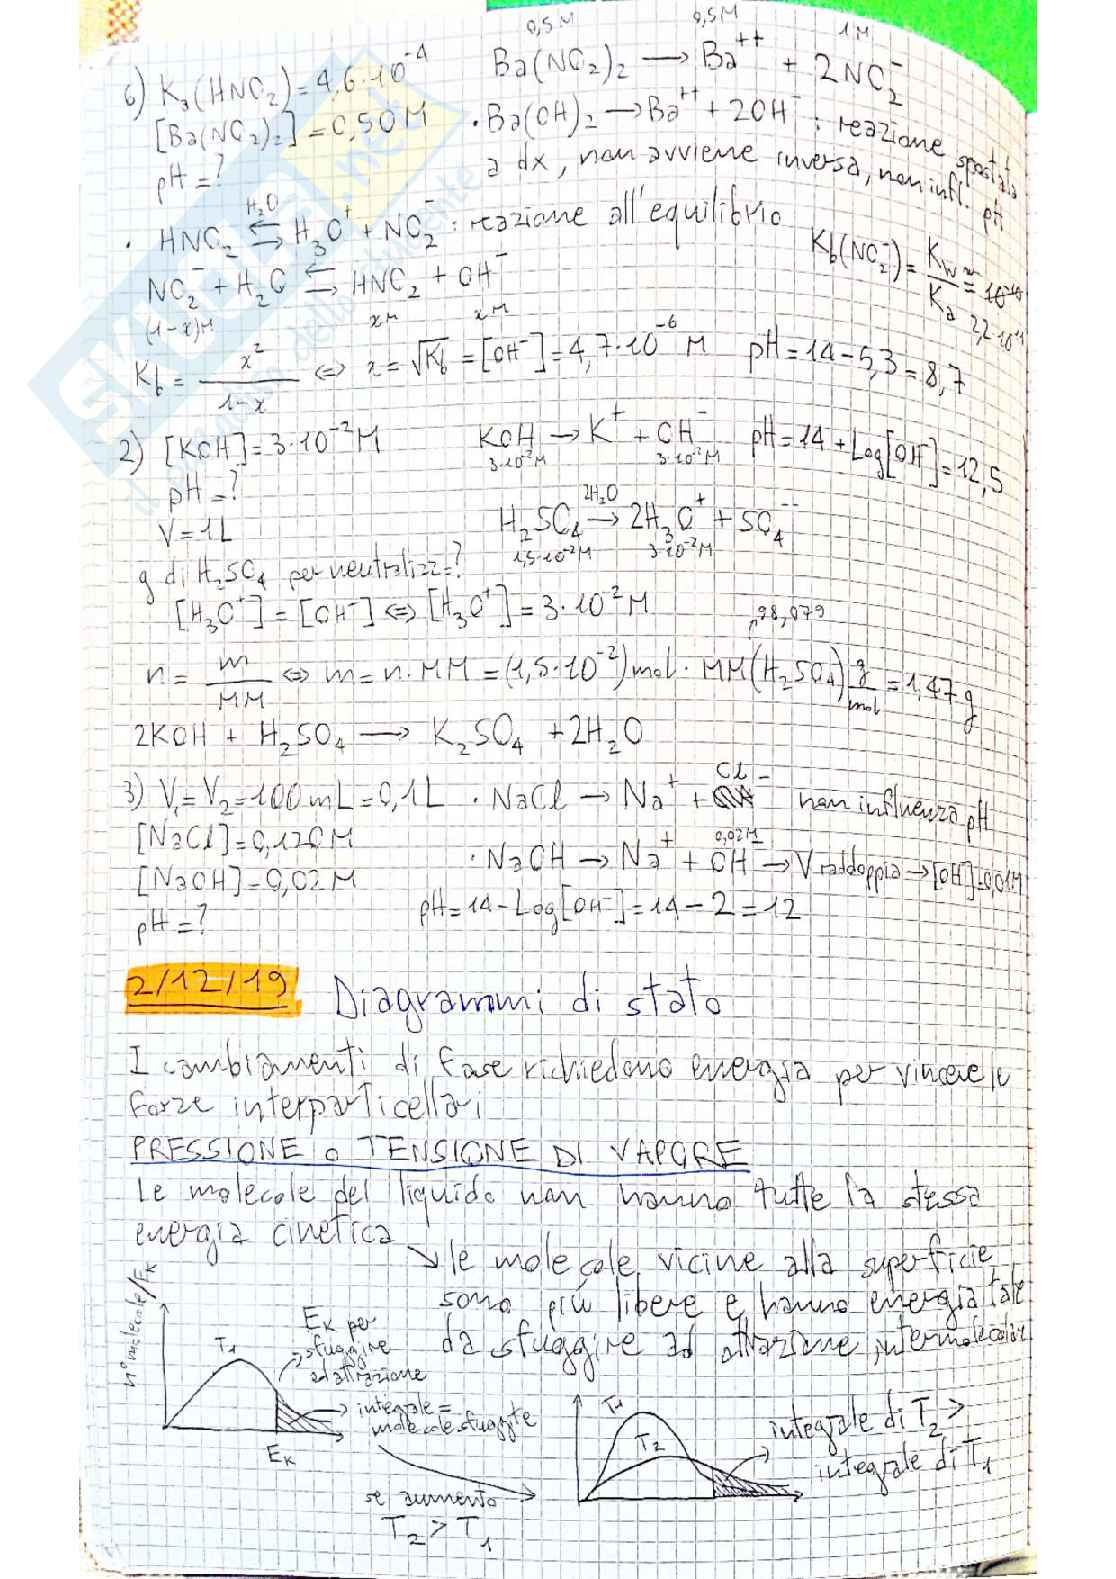 0,5M 0,5M 1M
6) Ka(HNO₂)=4,6·10⁻⁴ Ba(NO₂)₂ → Ba⁺⁺ + 2NO₂⁻
[Ba(NO₂)₂]=0,50M · Ba(OH)₂ → Ba⁺⁺ + 2OH⁻ : reazione spostata
pH=? a dx, non avviene inversa, non infl. pH
· HNO₂ ⇌ H₃O⁺ + NO₂⁻ : reazione all'equilibrio
H₂O
NO₂⁻ + H₂O ⇌ HNO₂ + OH⁻ Kb(NO₂⁻) = Kw/Ka
(1-x)M xM xM 2,2·10⁻¹¹
Kb = x²/(1-x) ⇔ x = √Kb = [OH⁻] = 4,7·10⁻⁶ M pH=14-5,3=8,7
2) [KOH]=3·10⁻²M KOH → K⁺ + OH⁻ pH=14+Log[OH⁻]=12,5
3·10⁻²M 3·10⁻²M
pH=?
V=1L H₂SO₄ → 2H₃O⁺ + SO₄⁻⁻
2H₂O
1,5·10⁻²M 3·10⁻²M
g di H₂SO₄ per neutralizz=?
[H₃O⁺]=[OH⁻] ⇔ [H₃O⁺]=3·10⁻²M
98,079
n = m/MM ⇔ m=n·MM=(1,5·10⁻²)mol·MM(H₂SO₄) g/mol =1,47g
2KOH + H₂SO₄ → K₂SO₄ + 2H₂O
3) V₁=V₂=100mL=0,1L · NaCl → Na⁺ + Cl⁻ non influenza pH
[NaCl]=0,120M
0,02M
[NaOH]=0,02M · NaOH → Na⁺ + OH⁻ → V raddoppia → [OH⁻]=0,01M
pH=? pH=14-Log[OH⁻]=14-2=12
2/12/19 Diagrammi di stato
I cambiamenti di fase richiedono energia per vincere le
forze interparticellari
PRESSIONE o TENSIONE DI VAPORE
Le molecole del liquido non hanno tutte la stessa
energia cinetica
↘ le molecole vicine alla superficie
sono più libere e hanno energia tale
da sfuggire ad attrazione intermolecolare
N° molecole/Ek
T₁
Ek per
sfuggire
ad attrazione
→ integrale =
molecole sfuggite
Ek
se aumento
T₂ > T₁
T₁
T₂
integrale di T₂ >
integrale di T₁
SKUOLA.net